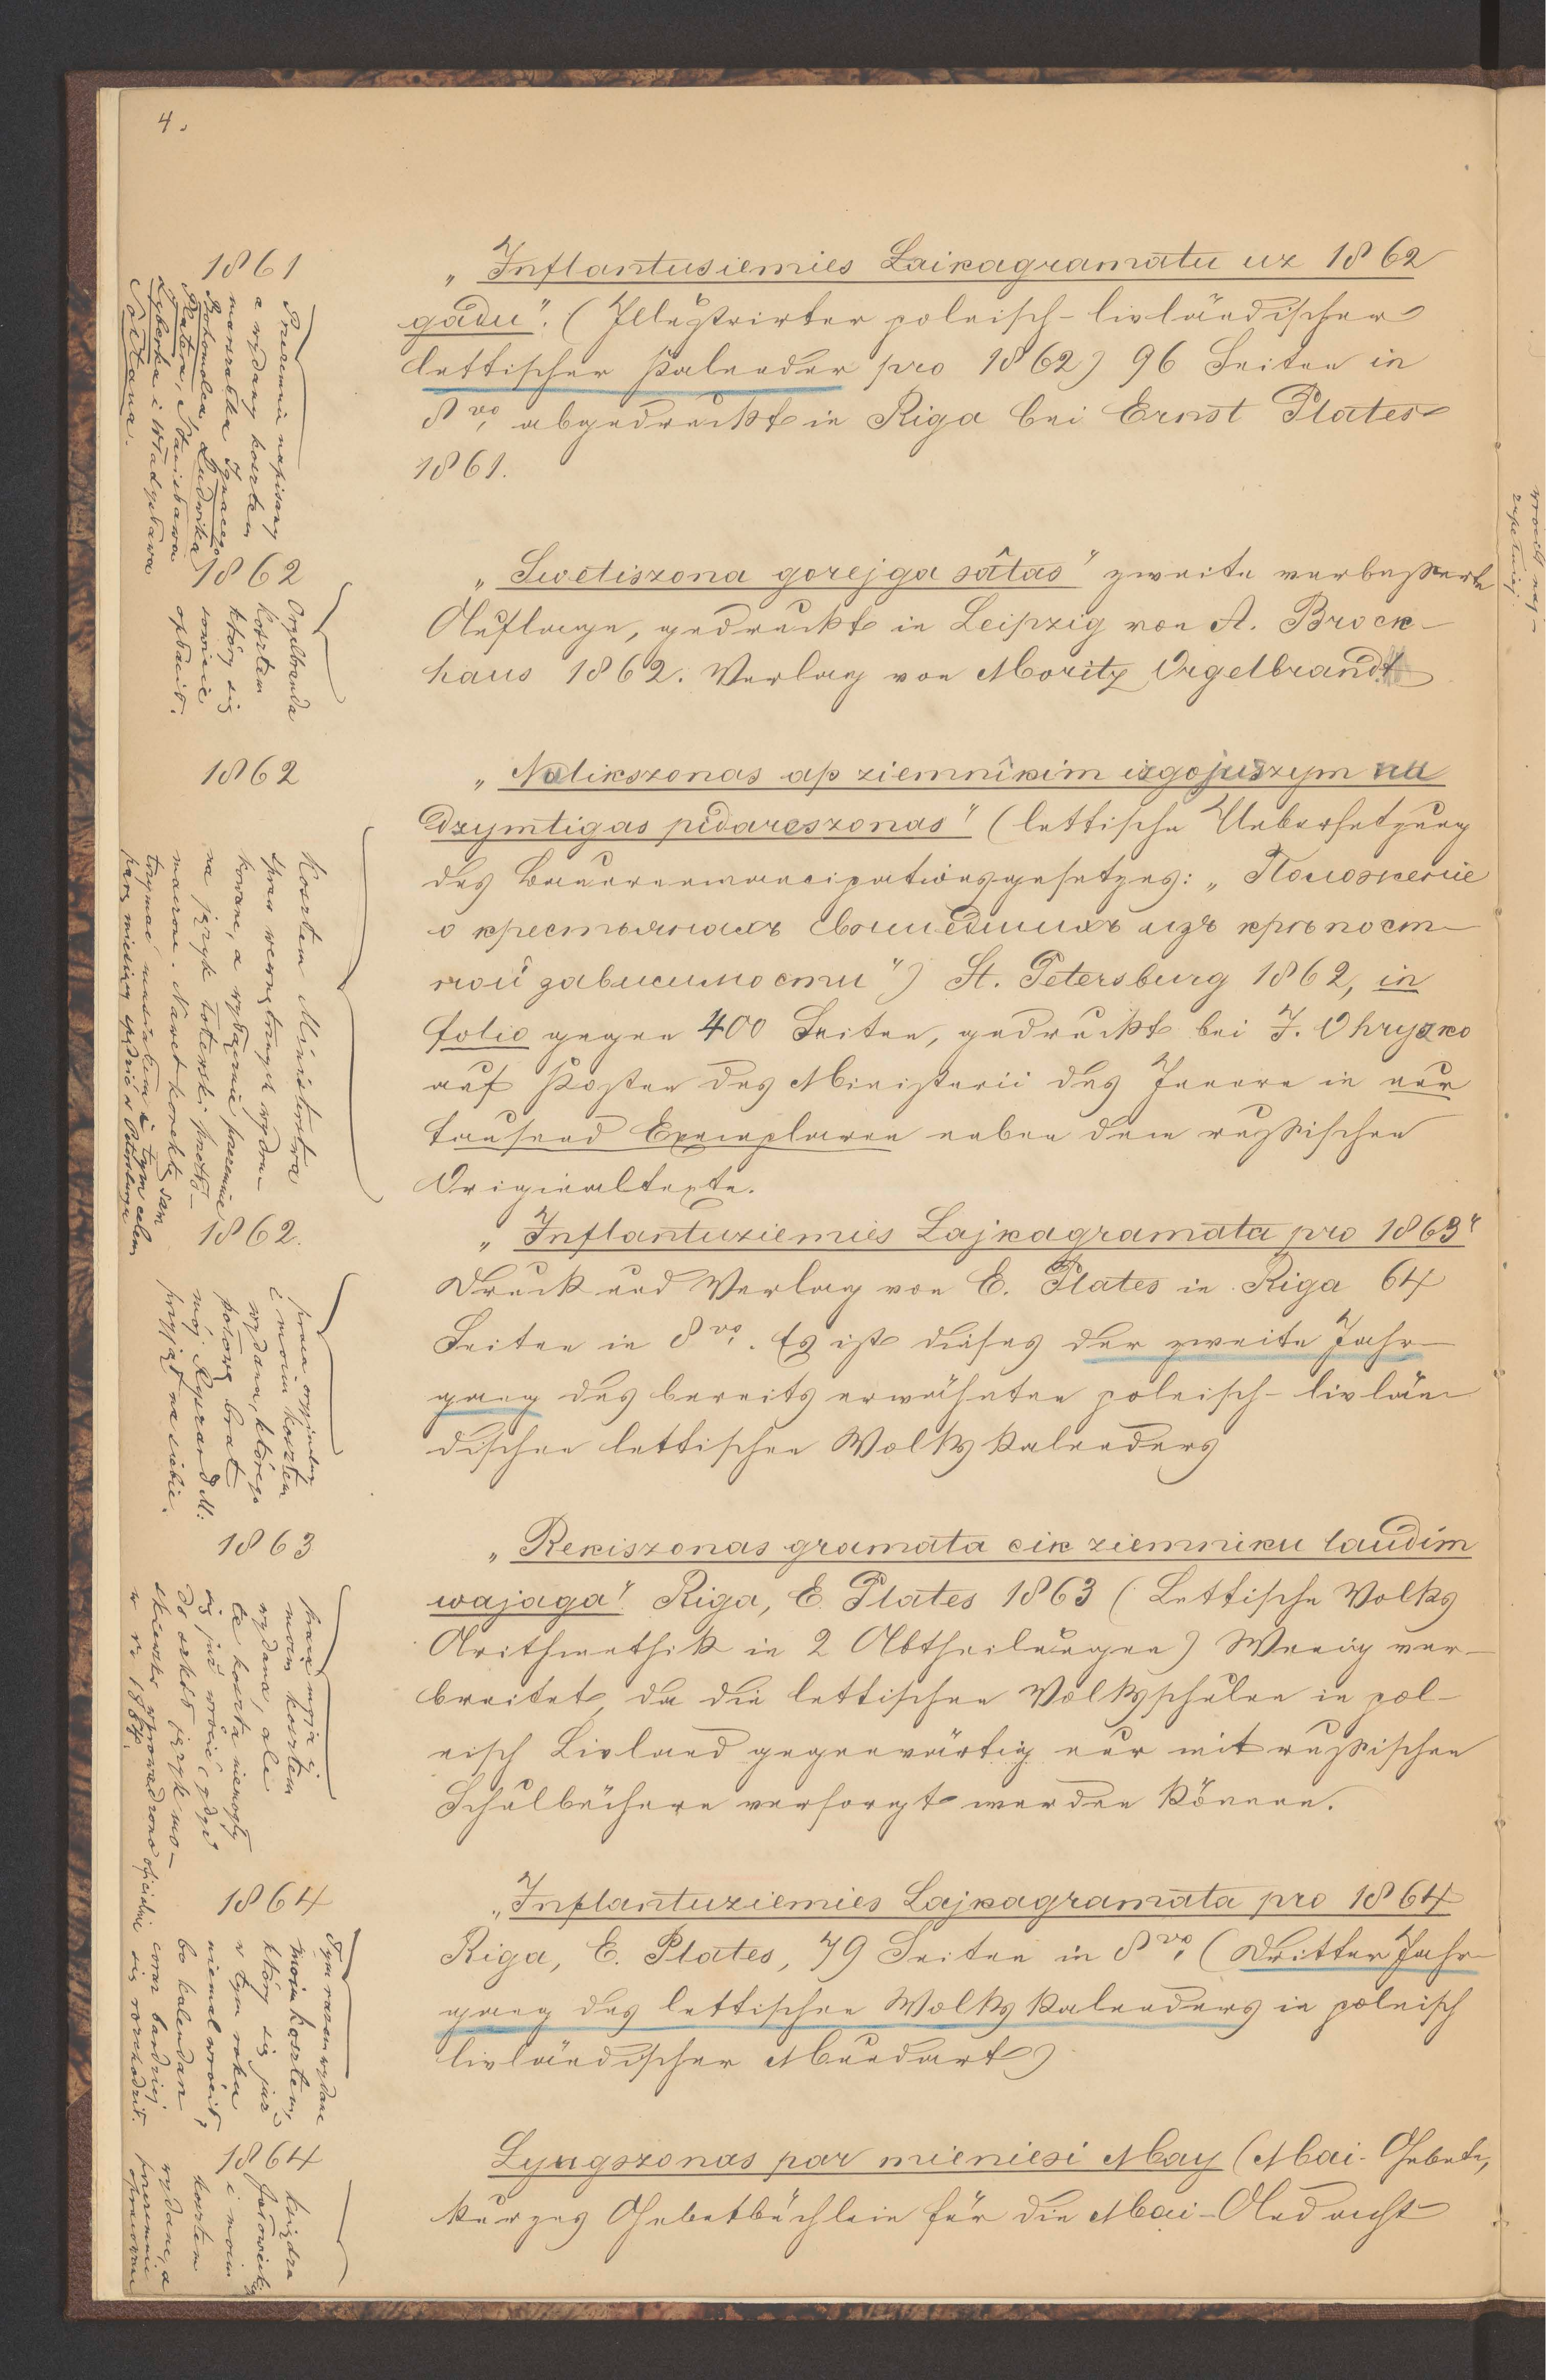 4.
1861
„Inflantusiemies Laikagramatu uz 1862
gadu". (Illustrirter polnisch-livländischer
lettischer Kalender pro 1862) 96 Seiten in
8vo, abgedruckt in Riga bei Ernst Plates
1861.
Przezemnie napisany
a wydany kosztem
marszałka Ignacego
Bohomolca, Ludwika
Platera, Stanisława
i Władysława
Sołtana.
1862
„Swetiszona gorejga sâtas" zweite verbesserte
Auflage, gedruckt in Leipzig von A. Brock-
haus 1862. Verlag von Moritz Orgelbrandt
Orgelbranda
kosztem
który się
sowicie
opłacił.
1862
„Nolikszonas ap ziemnîkim izgojuszym nu
dzymtigas pidareszonas" (lettische Uebersetzung
des Bauernemancipationsgesetzes: „Положение
о крестьянахъ вышедшихъ изъ крѣпост-
ной зависимости") St. Petersburg 1862, in
folio gegen 400 Seiten, gedruckt bei J. Ohryzko
auf Kosten des Ministerii des Innern in nur
tausend Exemplaren neben dem russischen
Originaltexte.
Kosztem Ministerstwa
spraw wewnętrznych wydru-
kowane, a wyłącznie przezemnie
na język łotewski przetłó-
maczone. Nawet korektę sam
trzymać musiałem i tym celem
parę miesięcy spędzić w Petersburgu
1862.
„Inflantuziemies Lajkagramata pro 1863"
Druck und Verlag von E. Plates in Riga 64
Seiten in 8vo. Es ist dieses der zweite Jahr-
gang des bereits erwähnten polnisch-livlän-
dischen lettischen Volkskalenders
praca oryginalna
i moim kosztem
wydana, którego
połowę brat
mój Ryszard M.
przyjął na siebie.
1863
„Rekiszonas gramata cik ziemniku laudim
wajaga". Riga, E. Plates 1863 (Lettische Volks
Arithmethik in 2 Abtheilungen) Wenig ver-
breitet, da die lettischen Volksschulen in pol-
nisch Livland gegenwärtig nur mit russischen
Schulbüchern versorgt werden können.
praca moja i
moim kosztem
wydana, ale
te koszta niemogły
się już wrócić gdyż
do szkół język mo-
skiewski wprowadzono oficialnie
w r. 1864.
1864
„Inflantuziemies Lajkagramata pro 1864
Riga, E. Plates, 79 Seiten in 8vo, (Dritter Jahr-
gang des lettischen Volkskalenders in polnisch
livländischer Mundart)
Tym razem wydane
moim kosztem,
który się już
w tym roku
niemal wrócił,
bo kalendarz
coraz bardziej
się rozchodził.
1864
Lyugszonas par mieniesi May (Mai-Gebete,
kurzes Gebetbüchlein für die Mai-Andacht
księdza
i moim
kosztem
wydane, a
przezemnie
opracowane